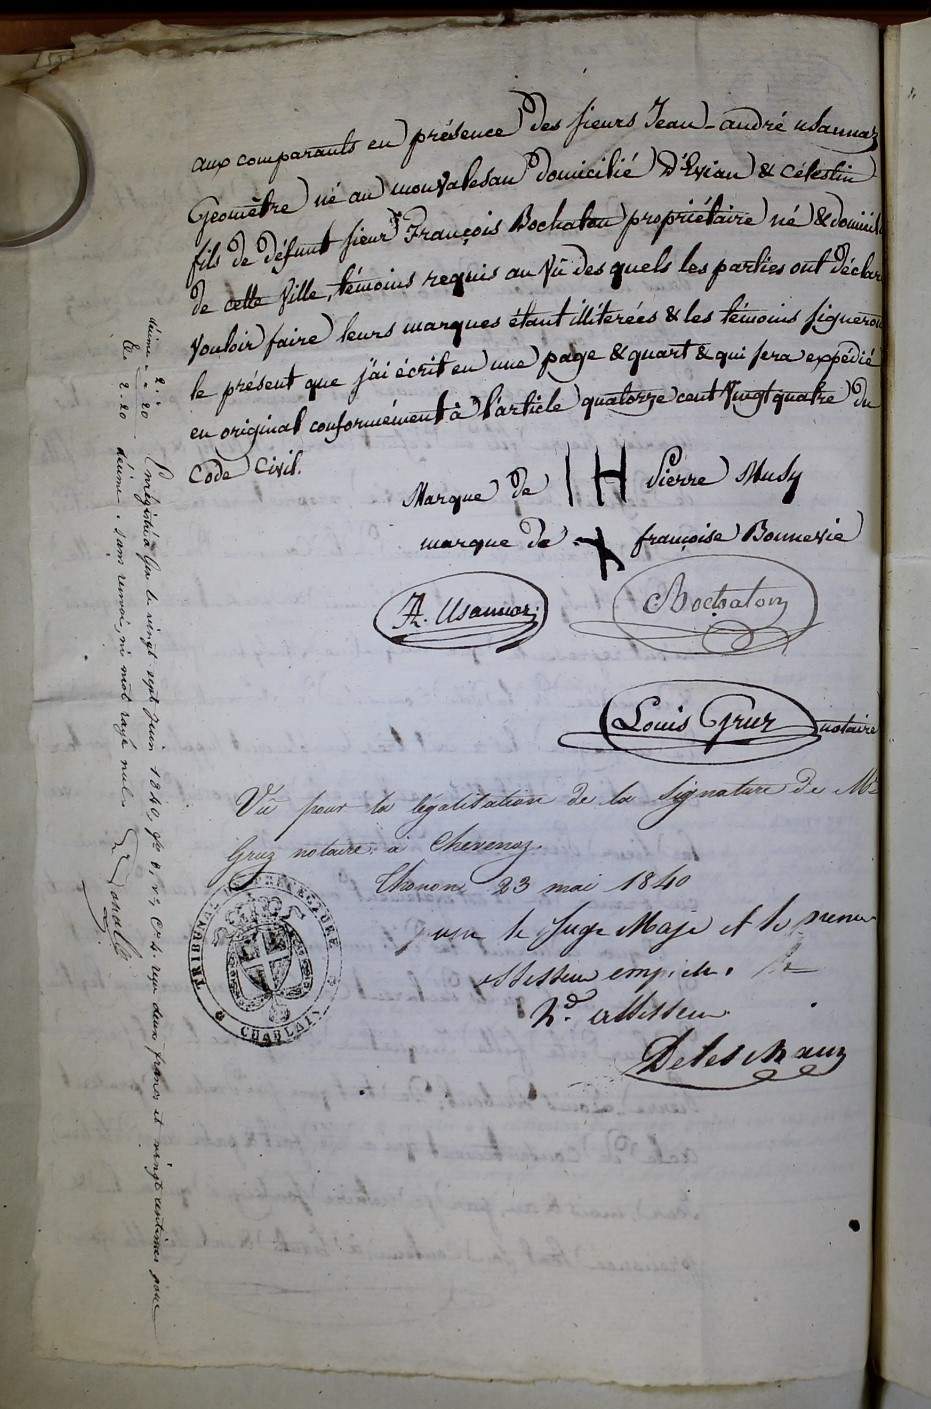 aux comparants en présence des sieurs Jean-andré usannaz
Géomètre né au monvalesan domicilié d'Evian & célestin
fils de défunt sieur François Bochaton propriétaire né & domicili
de cette Ville, témoins requis au Vû des quels les parties ont déclar
Vouloir faire leurs marques étant illiterées & les témoins signeron
le présent que j'ai écrit en une page & quart & qui sera expédié
en original conformément à l'article quatorze cent Vingt quatre du
Code Civil.
Marque de IH Pierre Musy
marque de + françoise Bonnevie
A. Usannaz
Bochaton
Louis Gruz notaire
Vu pour la légalisation de la signature de Me
Gruz notaire à Chevenoz.
Thonon 23 mai 1840
pour le Juge Maje et le premier
assesseur empêchés. Le
2d. assesseur
TRIBUNAL DE PRÉFECTURE
CHABLAIS
Enregistré à le vingt sept juin 1840, reçu deux francs et vingt centimes pour
décime. 2.20
2.20 décime. sans renvoi, ni mot rayé nul.